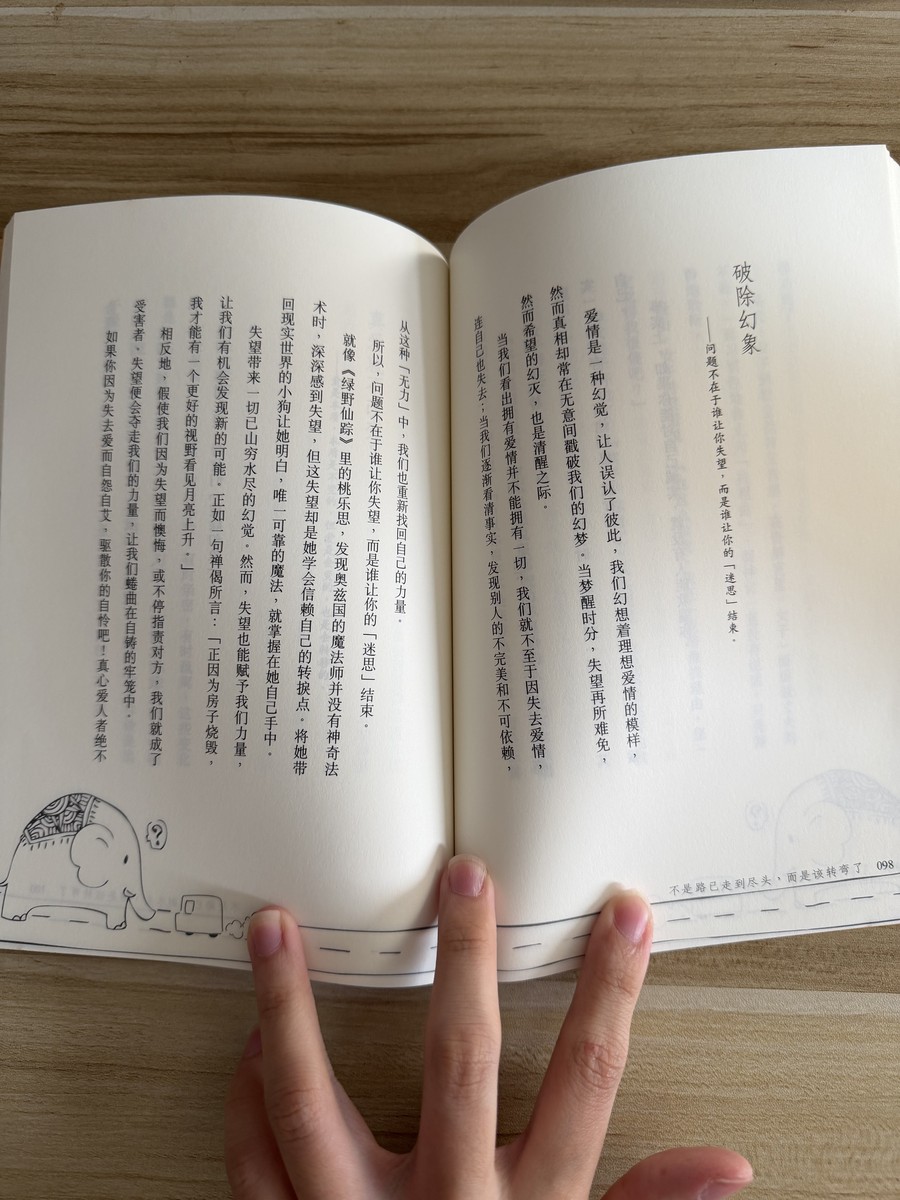 破除幻象
——问题不在于谁让你失望，而是谁让你的「迷思」结束。
爱情是一种幻觉，让人误认了彼此，我们幻想着理想爱情的模样，
然而真相却常在无意间戳破我们的幻梦。当梦醒时分，失望再所难免，
然而希望的幻灭，也是清醒之际。
当我们看出拥有爱情并不能拥有一切，我们就不至于因失去爱情，
连自己也失去；当我们逐渐看清事实，发现别人的不完美和不可依赖，
098
不是路已走到尽头，而是该转弯了
从这种「无力」中，我们也重新找回自己的力量。
所以，问题不在于谁让你失望，而是谁让你的「迷思」结束。
就像《绿野仙踪》里的桃乐思，发现奥兹国的魔法师并没有神奇法
术时，深深感到失望，但这失望却是她学会信赖自己的转捩点。将她带
回现实世界的小狗让她明白，唯一可靠的魔法，就掌握在她自己手中。
失望带来一切已山穷水尽的幻觉。然而，失望也能赋予我们力量，
让我们有机会发现新的可能。正如一句禅偈所言：「正因为房子烧毁，
我才能有一个更好的视野看见月亮上升。」
相反地，假使我们因为失望而懊悔，或不停指责对方，我们就成了
受害者。失望便会夺走我们的力量，让我们蜷曲在自铸的牢笼中。
如果你因为失去爱而自怨自艾，驱散你的自怜吧！真心爱人者绝不
?